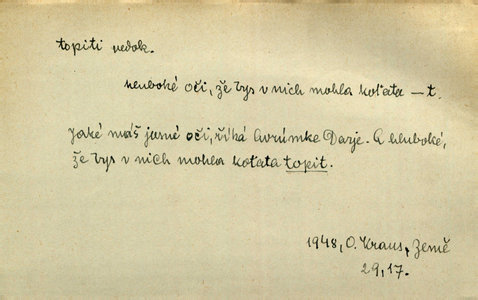 topiti nedok.
hluboké oči, že bys v nich mohla koťata – t.
Jaké máš jasné oči, říká Avrúmke Darje. A hluboké,
že bys v nich mohla koťata topit.
1948, O. Kraus, Země
29, 17.